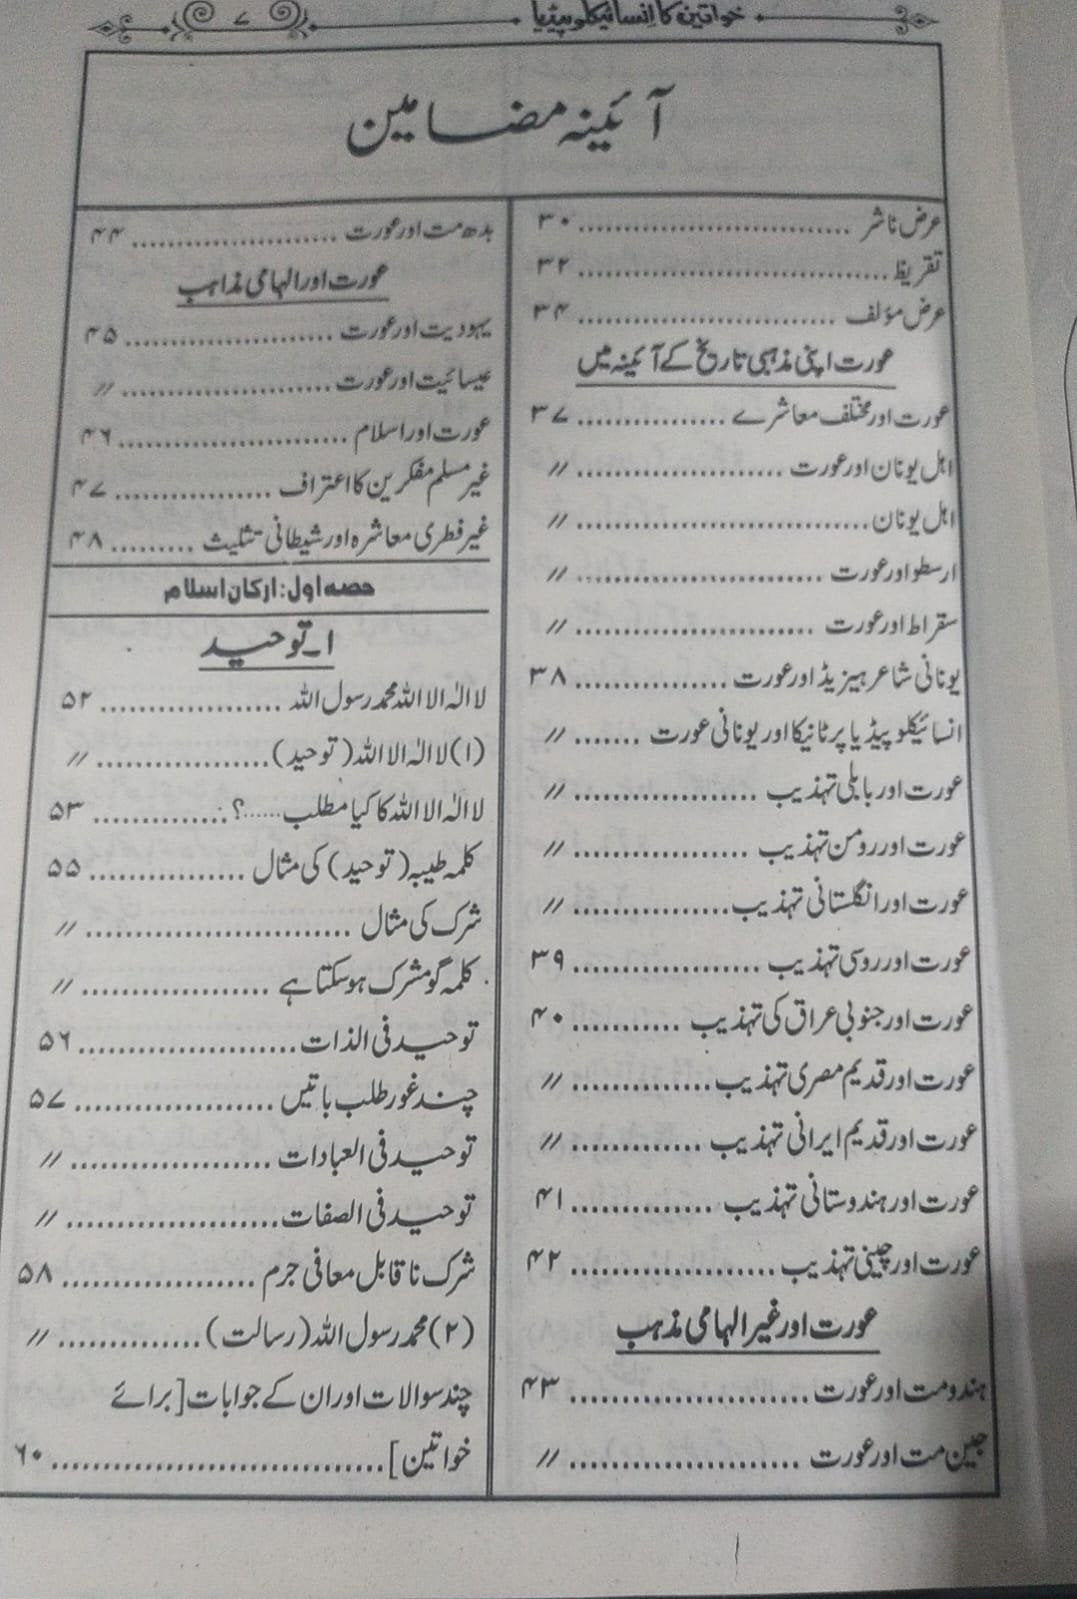 خواتین کا انسائیکلوپیڈیا
۷
آئینہ مضامین
عرض ناشر ............................ ۳۰
تقریظ ................................ ۳۲
عرض مؤلف ............................ ۳۴
عورت اپنی مذہبی تاریخ کے آئینہ میں
عورت اور مختلف معاشرے ................ ۳۷
اہل یونان اور عورت .................... //
اہل یونان ............................ //
ارسطو اور عورت ........................ //
سقراط اور عورت ........................ //
یونانی شاعر ہیزیڈ اور عورت ............... ۳۸
انسائیکلوپیڈیا برٹانیکا اور یونانی عورت ....... //
عورت اور بابلی تہذیب .................. //
عورت اور رومن تہذیب ................. //
عورت اور انگلستانی تہذیب ............... //
عورت اور روسی تہذیب .................. ۳۹
عورت اور جنوبی عراق کی تہذیب ........... ۴۰
عورت اور قدیم مصری تہذیب ............. //
عورت اور قدیم ایرانی تہذیب ............. //
عورت اور ہندوستانی تہذیب .............. ۴۱
عورت اور چینی تہذیب ................... ۴۲
عورت اور غیر الہامی مذہب
ہندومت اور عورت ....................... ۴۳
جین مت اور عورت ...................... //
بدھ مت اور عورت ...................... ۴۴
عورت اور الہامی مذاہب
یہودیت اور عورت ...................... ۴۵
عیسائیت اور عورت ...................... //
عورت اور اسلام ........................ ۴۶
غیر مسلم مفکرین کا اعتراف ................ ۴۷
غیر فطری معاشرہ اور شیطانی تثلیث ......... ۴۸
حصہ اول: ارکان اسلام
۱۔ توحید
لا الٰہ الا اللہ محمد رسول اللہ .................. ۵۲
(۱) لا الٰہ الا اللہ (توحید) .................. //
لا الٰہ الا اللہ کا کیا مطلب......؟ .............. ۵۳
کلمہ طیبہ (توحید) کی مثال ................ ۵۵
شرک کی مثال .......................... //
کلمہ گو مشرک ہو سکتا ہے ................... //
توحید فی الذات ........................ ۵۶
چند غور طلب باتیں ...................... ۵۷
توحید فی العبادات ...................... //
توحید فی الصفات ....................... //
شرک ناقابل معافی جرم ................... ۵۸
(۲) محمد رسول اللہ (رسالت) .............. //
چند سوالات اور ان کے جوابات [برائے
خواتین] ................................ ۶۰